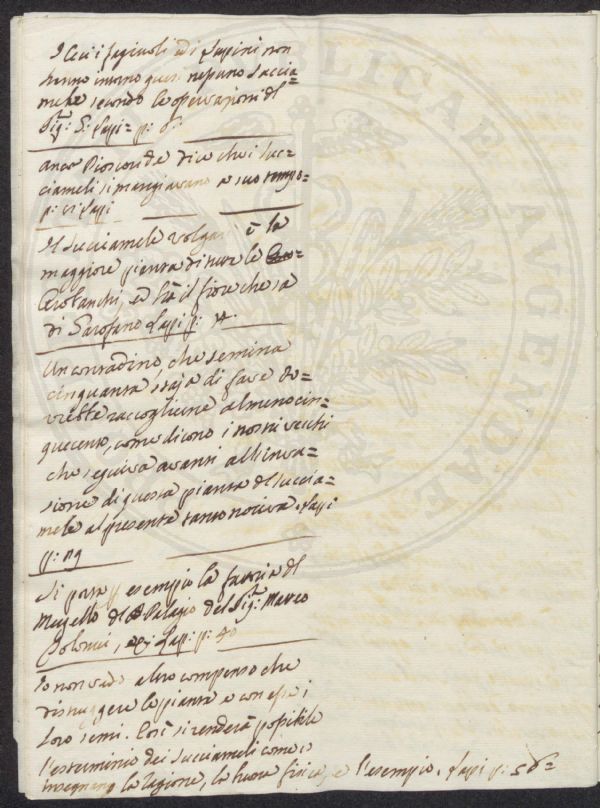 I Ceci i fagiuoli ed i Lupini non
hanno intorno quasi nessuno succia=
mele secondo le osservazioni del
Sig:r S: Lapi = p: 8.
anco Dioscoride dice che i suc=
ciameli si mangiavano a suo tempo=
p: Lapi
Il Succiamele volgare è la
maggiore pianta di tutte le
Orobanchi, ed hà il fiore che sà
di Garofano Lapi p: 14.
Un contadino, che semina
cinquanta staja di fave do=
vrebbe raccogliene almeno cin=
quecento, come dicono i nostri vecchi
che seguiva avanti all'inva=
sione di questa pianta del succia=
mele al presente tanto nociva. Lapi
p: 19
Si porta p esempio la fattoria del
Mugello del Palagio del Sig:r Marco
Lapi: p: 40
Io non vedo altro compenso che
distruggere le piante e con esse i
loro semi. Così si renderà possibile
l'esterminio dei succiameli come c'
insegnano la ragione, la buona fisica, e l'esempio. Lapi p: 56=
PUBLICAE AUGENDAE